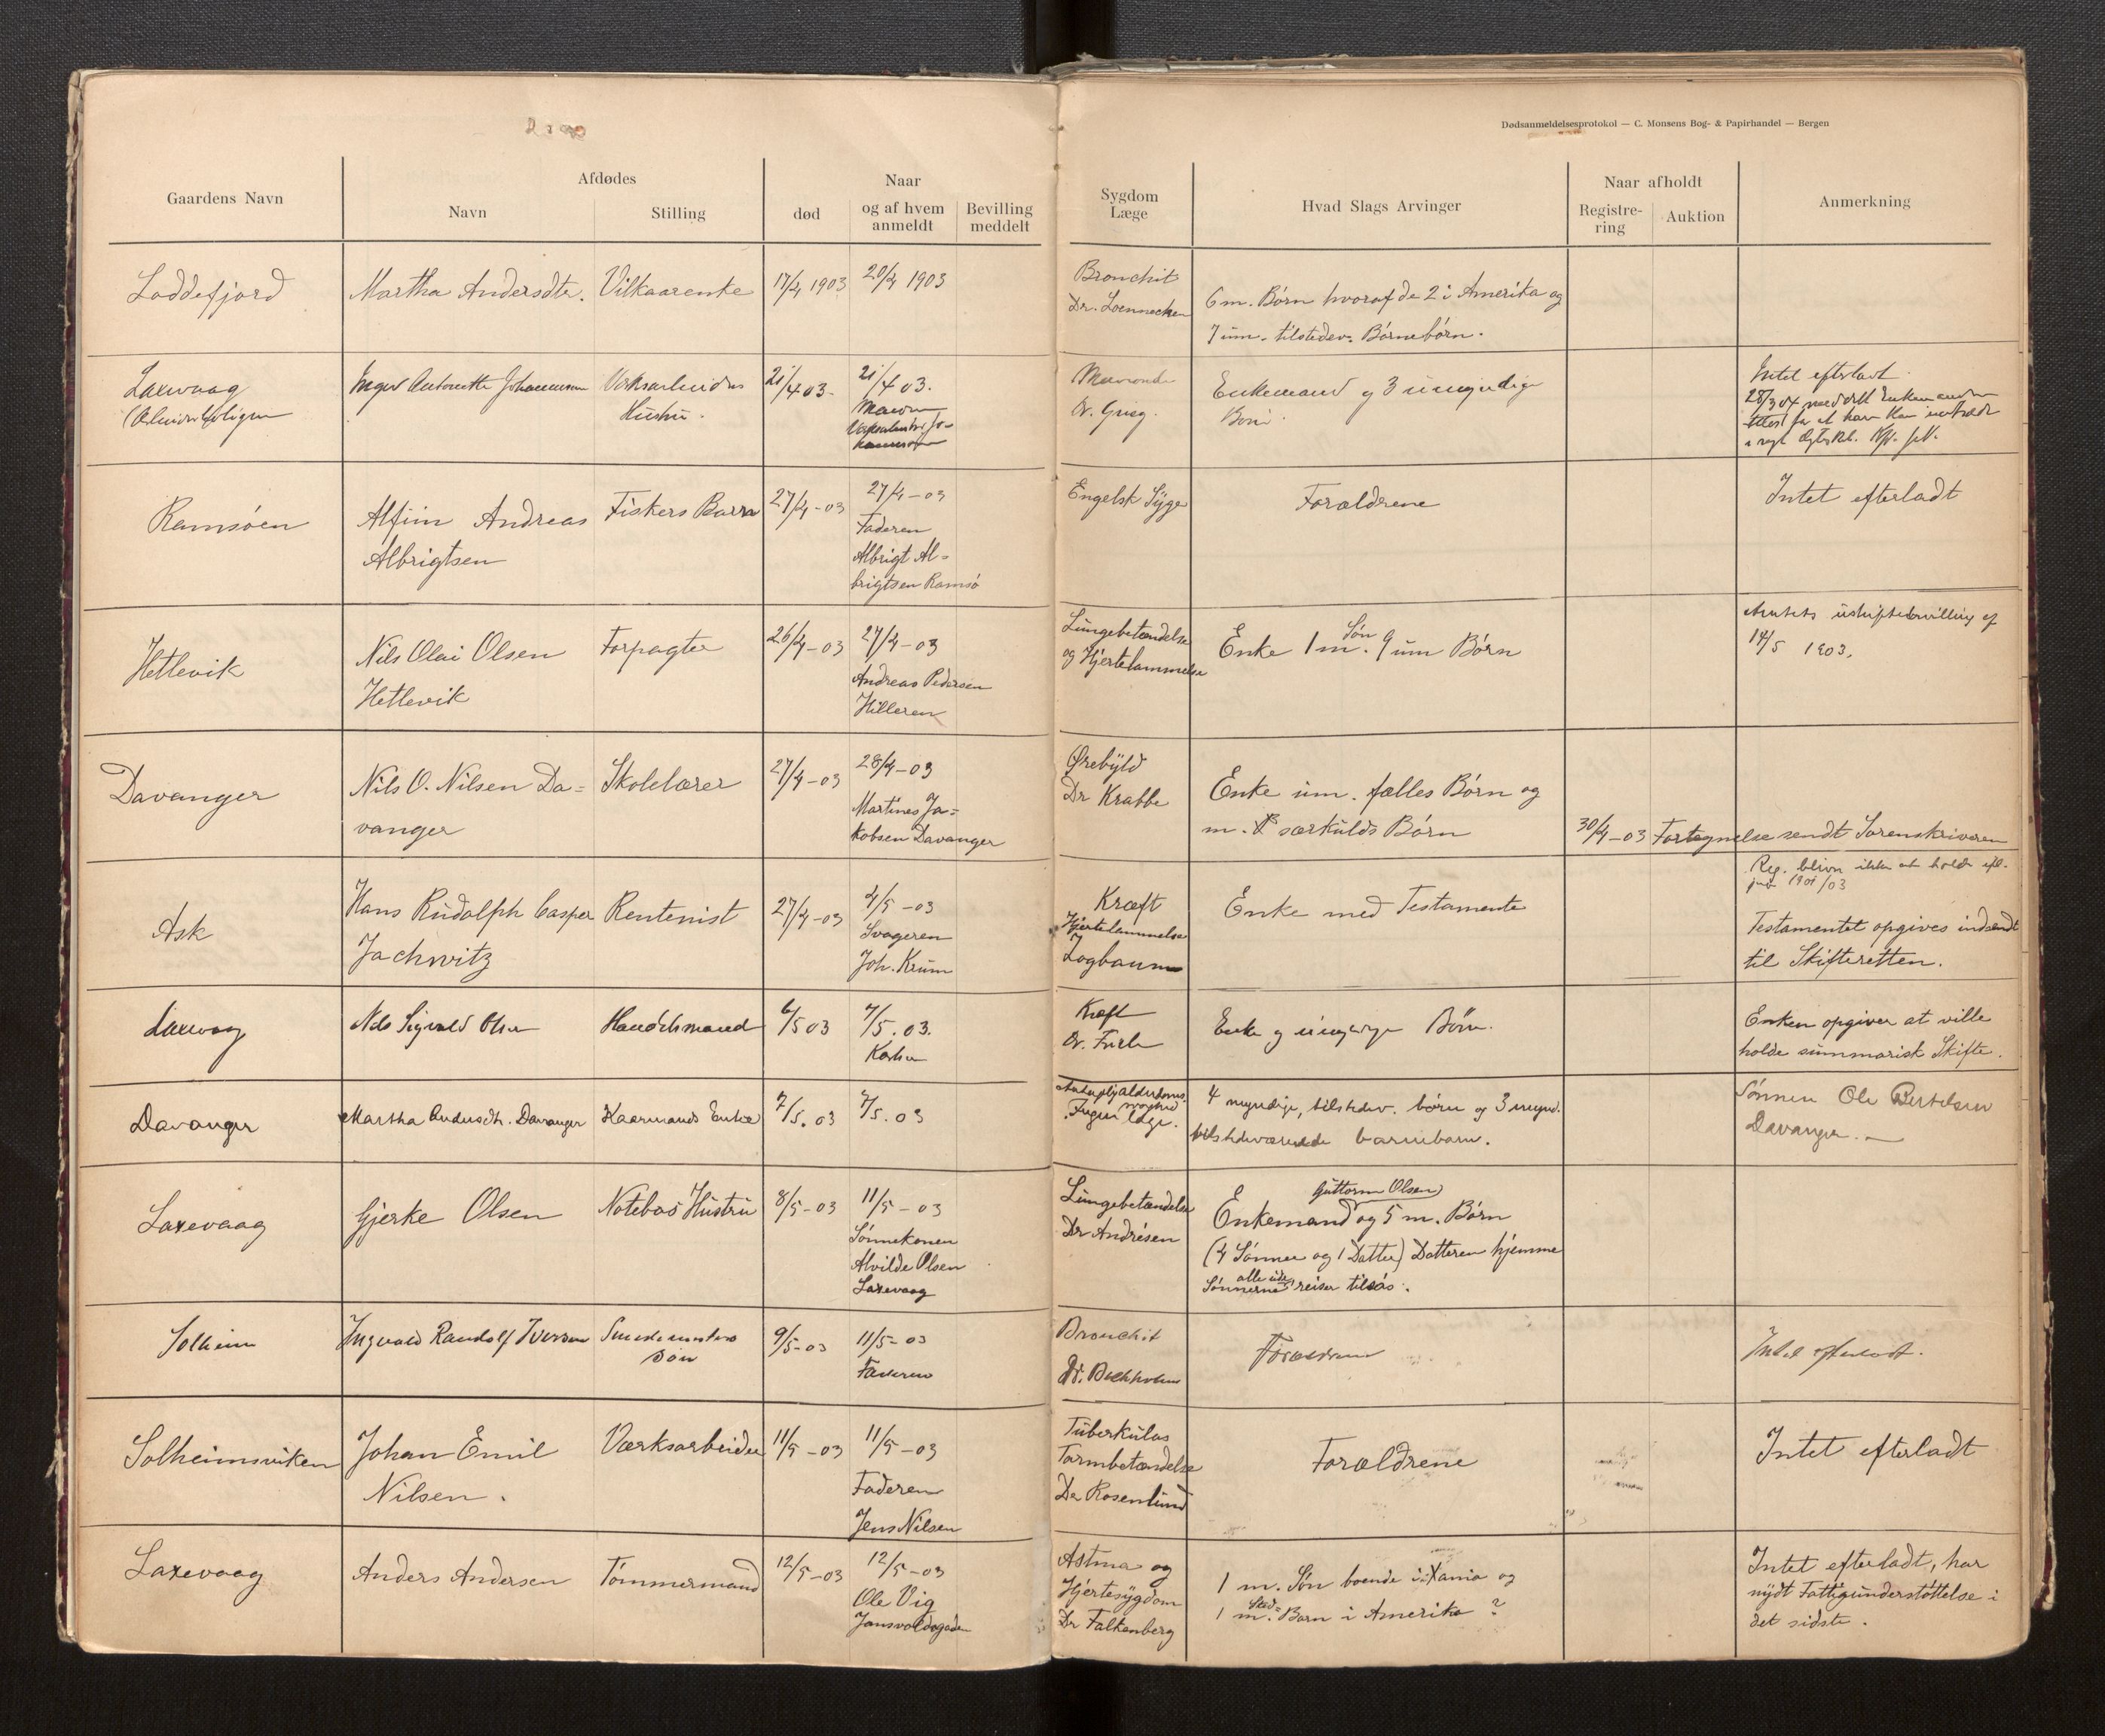 Dødsanmeldelsesprotokol — C. Monsens Bog- & Papirhandel — Bergen
Gaardens Navn
Afdødes
Navn
Stilling
Naar
død
og af hvem
anmeldt
Bevilling
meddelt
Sygdom
Læge
Hvad Slags Arvinger
Naar afholdt
Registre-
ring
Auktion
Anmerkning
Loddefjord
Martha Andersdtr.
Vilkaarenke
17/4 1903
20/4 1903
Bronchit
Dr. Loennechen
6 m. Børn hvoraf de 2 i Amerika og
7 um. tilstedev. Børnebørn.
Laxevaag
Antonette Johannesen
Hustru.
21/4 03.
21/4 03.
Dr. Grieg.
Enkemand og 3 umyndige
Børn.
Intet efterladt.
Ramsøen
Alfim Andreas
Albrigtsen
Fiskers Barn
27/4-03
27/4-03
Faderen
Albrigt Al=
brigtsen Ramsø
Engelsk Syge
Forældrene
Intet efterladt
Hetlevik
Nils Olai Olsen
Hetlevik
Forpagter
26/4-03
27/4-03
Andreas Pedersen
Hilleren
Lungebetændelse
og Hjertelammelse
Søn
Enke 1 m. 9 um Børn
Amtets uskiftebevilling af
14/5 1903.
Davanger
Nils O. Nilsen Da=
vanger
Skolelærer
27/4-03
28/4-03
Martines Ja=
kobsen Davanger
Ørebyld
Dr Krabbe
Enke um. fælles Børn og
m. særkulds Børn
30/4-03 Fortegnelse sendt Sorenskriveren
Reg. bliver ikke at holde
Ask
Hans Rudolph Casper
Jachwitz
Rentenist
27/4-03
4/5-03
Svogeren
Joh. Krum
Kræft
Hjertelammelse
Enke med Testamente
Testamentet opgives indsendt
til Skifteretten.
Laxevaag
Nils Sigvald Olsen
Handelsmand
6/5 03
7/5. 03.
Kræft
Enke og Børn.
Enken opgiver at ville
holde summarisk Skifte.
Davanger
Martha Andersdtr. Davanger
Kaarmands Enke
7/5. 03
7/5. 03
Ingen læge.
4 myndige, tilstedev. børn og 3 umynd.
tilstedeværende barnebarn.
Sønnen Ole Bertelsen
Davanger.
Laxevaag
Gjerke Olsen
Notebas Hustru
8/5-03
11/5-03
Sønnekonen
Alvilde Olsen
Laxevaag
Lungebetændelse
Dr Andrésen
Guttorm Olsen
Enkemand og 5 m. Børn
(4 Sønner og 1 Datter) Datteren hjemme
alle ude
Sønnerne reiser tilsøs.
Solheim
Ingvald Randolf Iversen
Søn
9/5-03
11/5-03
Faderen
Bronchit
Forældrene
Intet efterladt.
Solheimsviken
Johan Emil
Nilsen.
Værksarbeider
11/5-03
11/5-03
Faderen
Jens Nilsen
Tuberkuløs
Tarmbetændelse
Dr Rosenlund
Forældrene
Intet efterladt
Laxevaag
Anders Andersen
Tømmermand
12/5-03
12/5-03
Ole Vig
Astma og
Hjertesygdom
Dr Falkenberg
1 m. Søn boende i Xania og
Sted=
1 m. Barn i Amerika ?
Intet efterladt, har
nydt Fattigunderstøttelse i
det sidste.